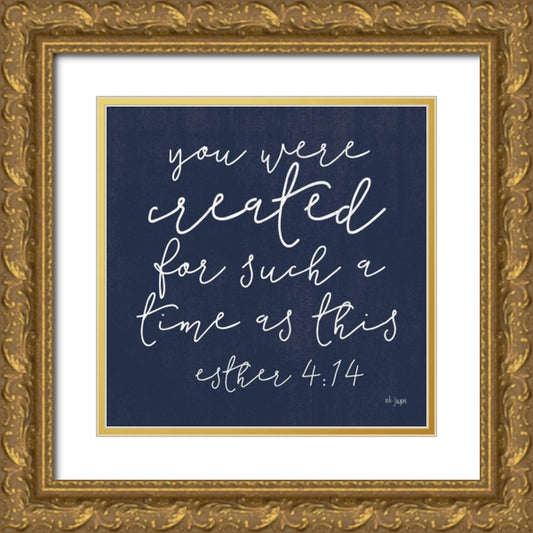 you were
created
for such a
time as this
esther 4:14